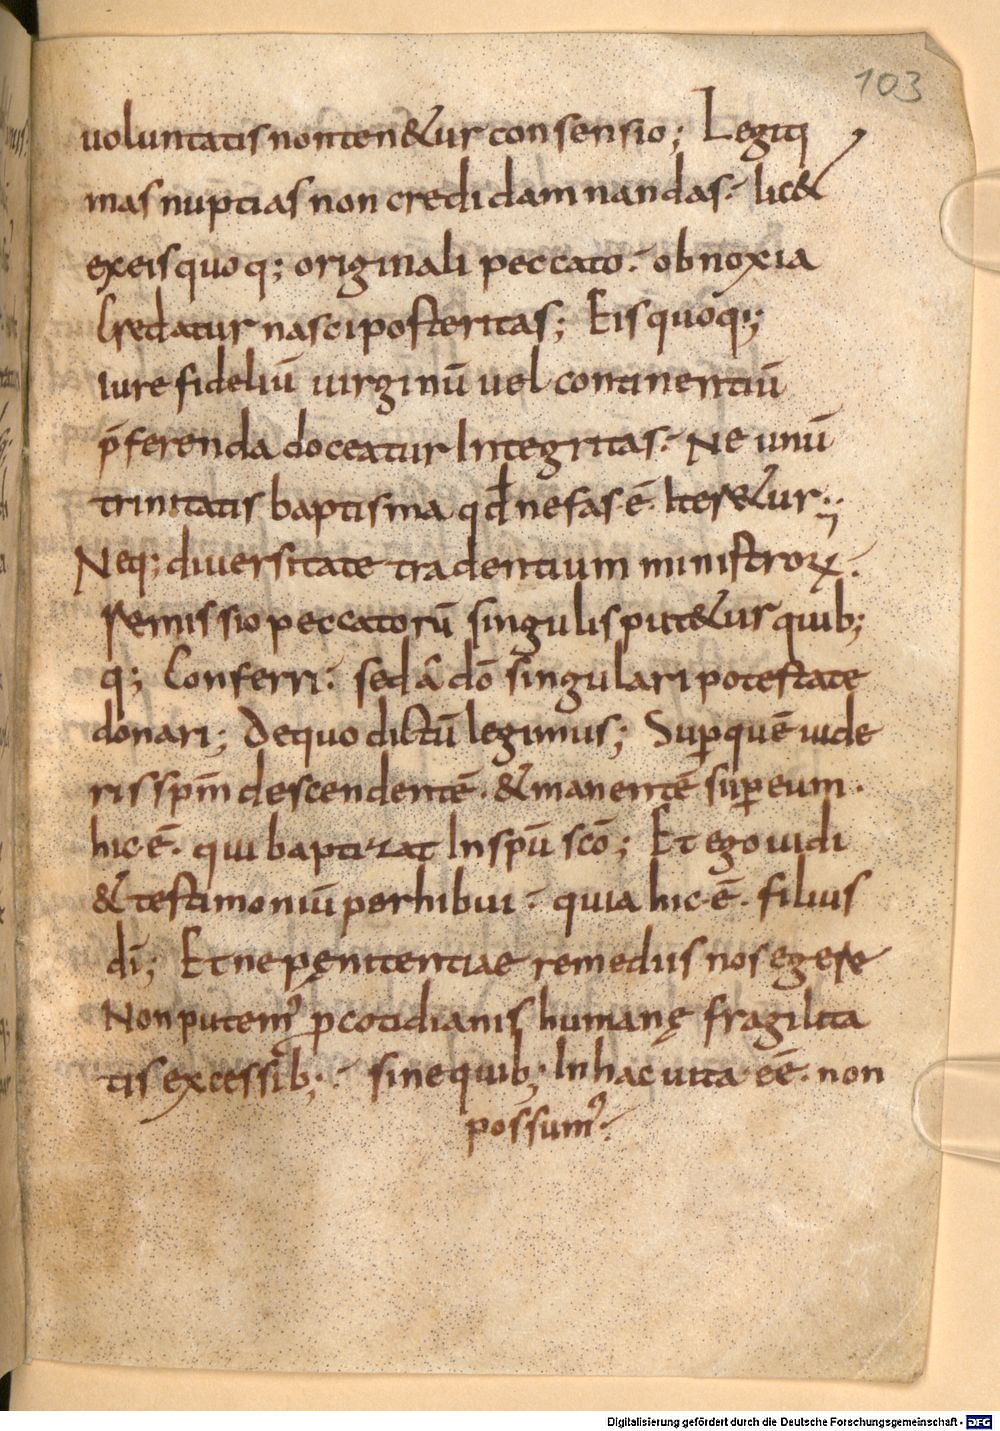 103
uoluntatis non ten&ur consensio; Legiti
mas nuptias non credi damnandas. lic&
ex eis quoq; originali peccato. obnoxia
credatur nasci posteritas; Eisquoq;
iure fideliū uirginū uel continentiū
p̄ferenda doceatur Integritas. Ne unū
trinitatis baptisma qđ nefas ē. Iter&ur;
Neq; diuersitate tradentium ministroꝝ.
remissio peccatorū singulis put&ur quib;
q; Conferri. sed a dō singulari potestate
donari; De quo dictū legimus; Sup̱ quē uide
ris sp̄m descendentē. & manentē sup̱ eum.
hic ē. qui baptizat In sp̄ū scō; Et ego uidi
& testimoniū perhibui. quia hic ē. filius
dī; Et ne pęnitentiae remediis nos egere
Non putem᾽ ꝑ cotidianis humanę fragilita
tis excessib;. sine quib; In hac uita eē. non
possum᾽.
Digitalisierung gefördert durch die Deutsche Forschungsgemeinschaft - DFG